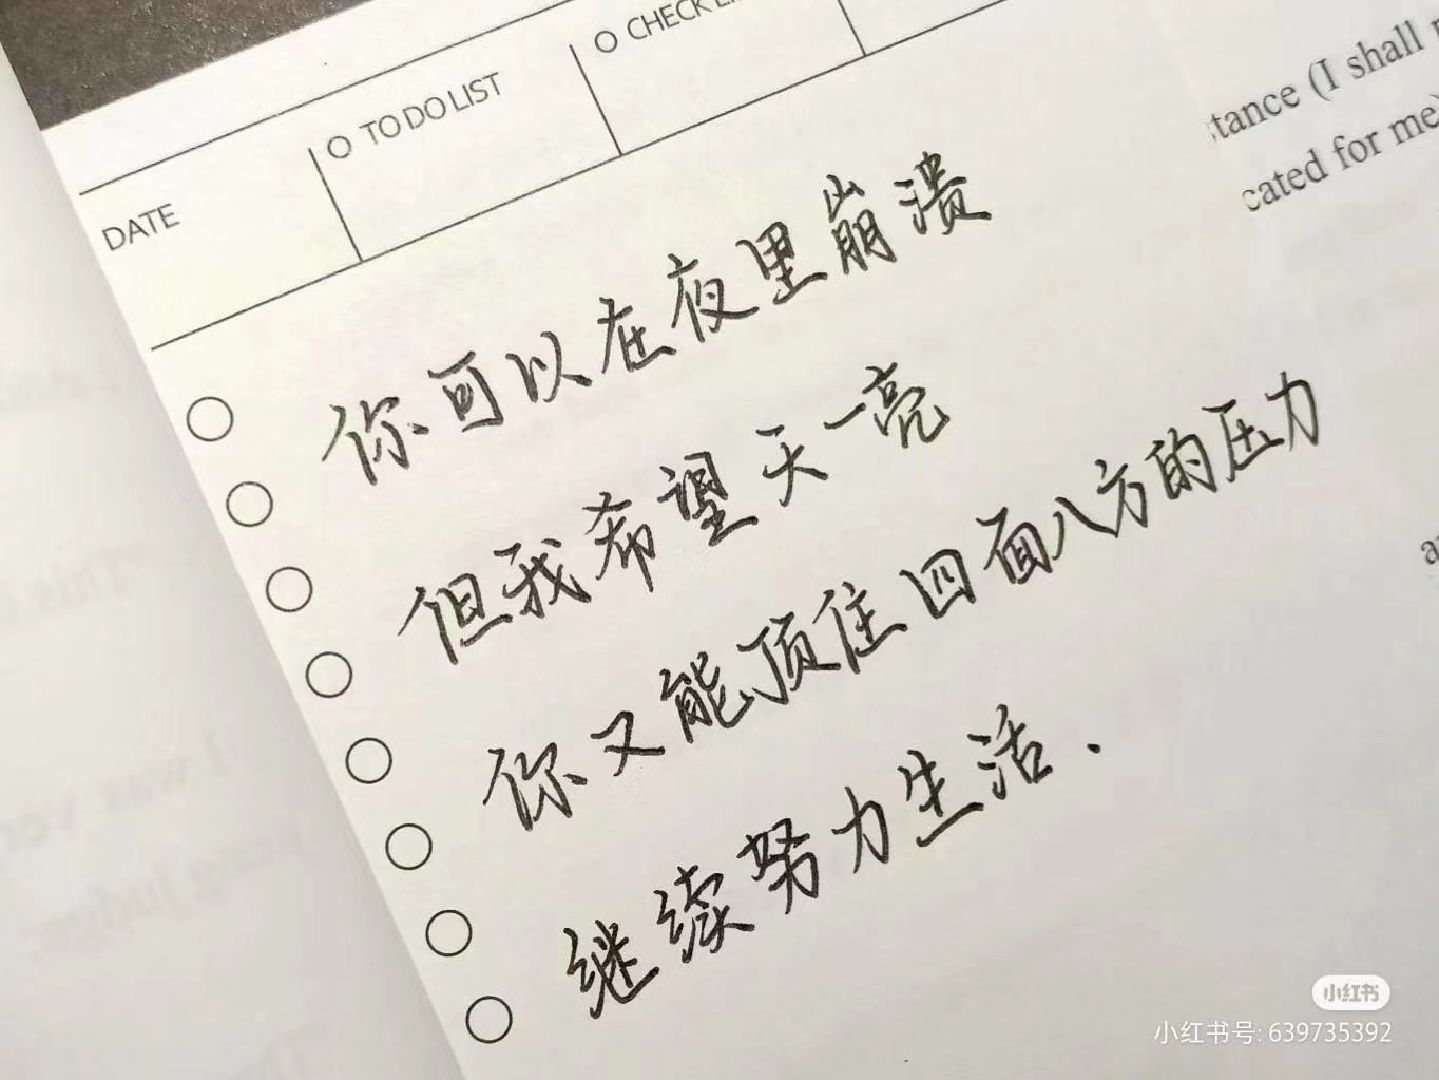 DATE
○ TO DO LIST
○ CHECK
tance (I shall
cated for me)
你可以在夜里崩溃
但我希望天一亮
你又能顶住四面八方的压力
继续努力生活.
小红书
小红书号: 639735392